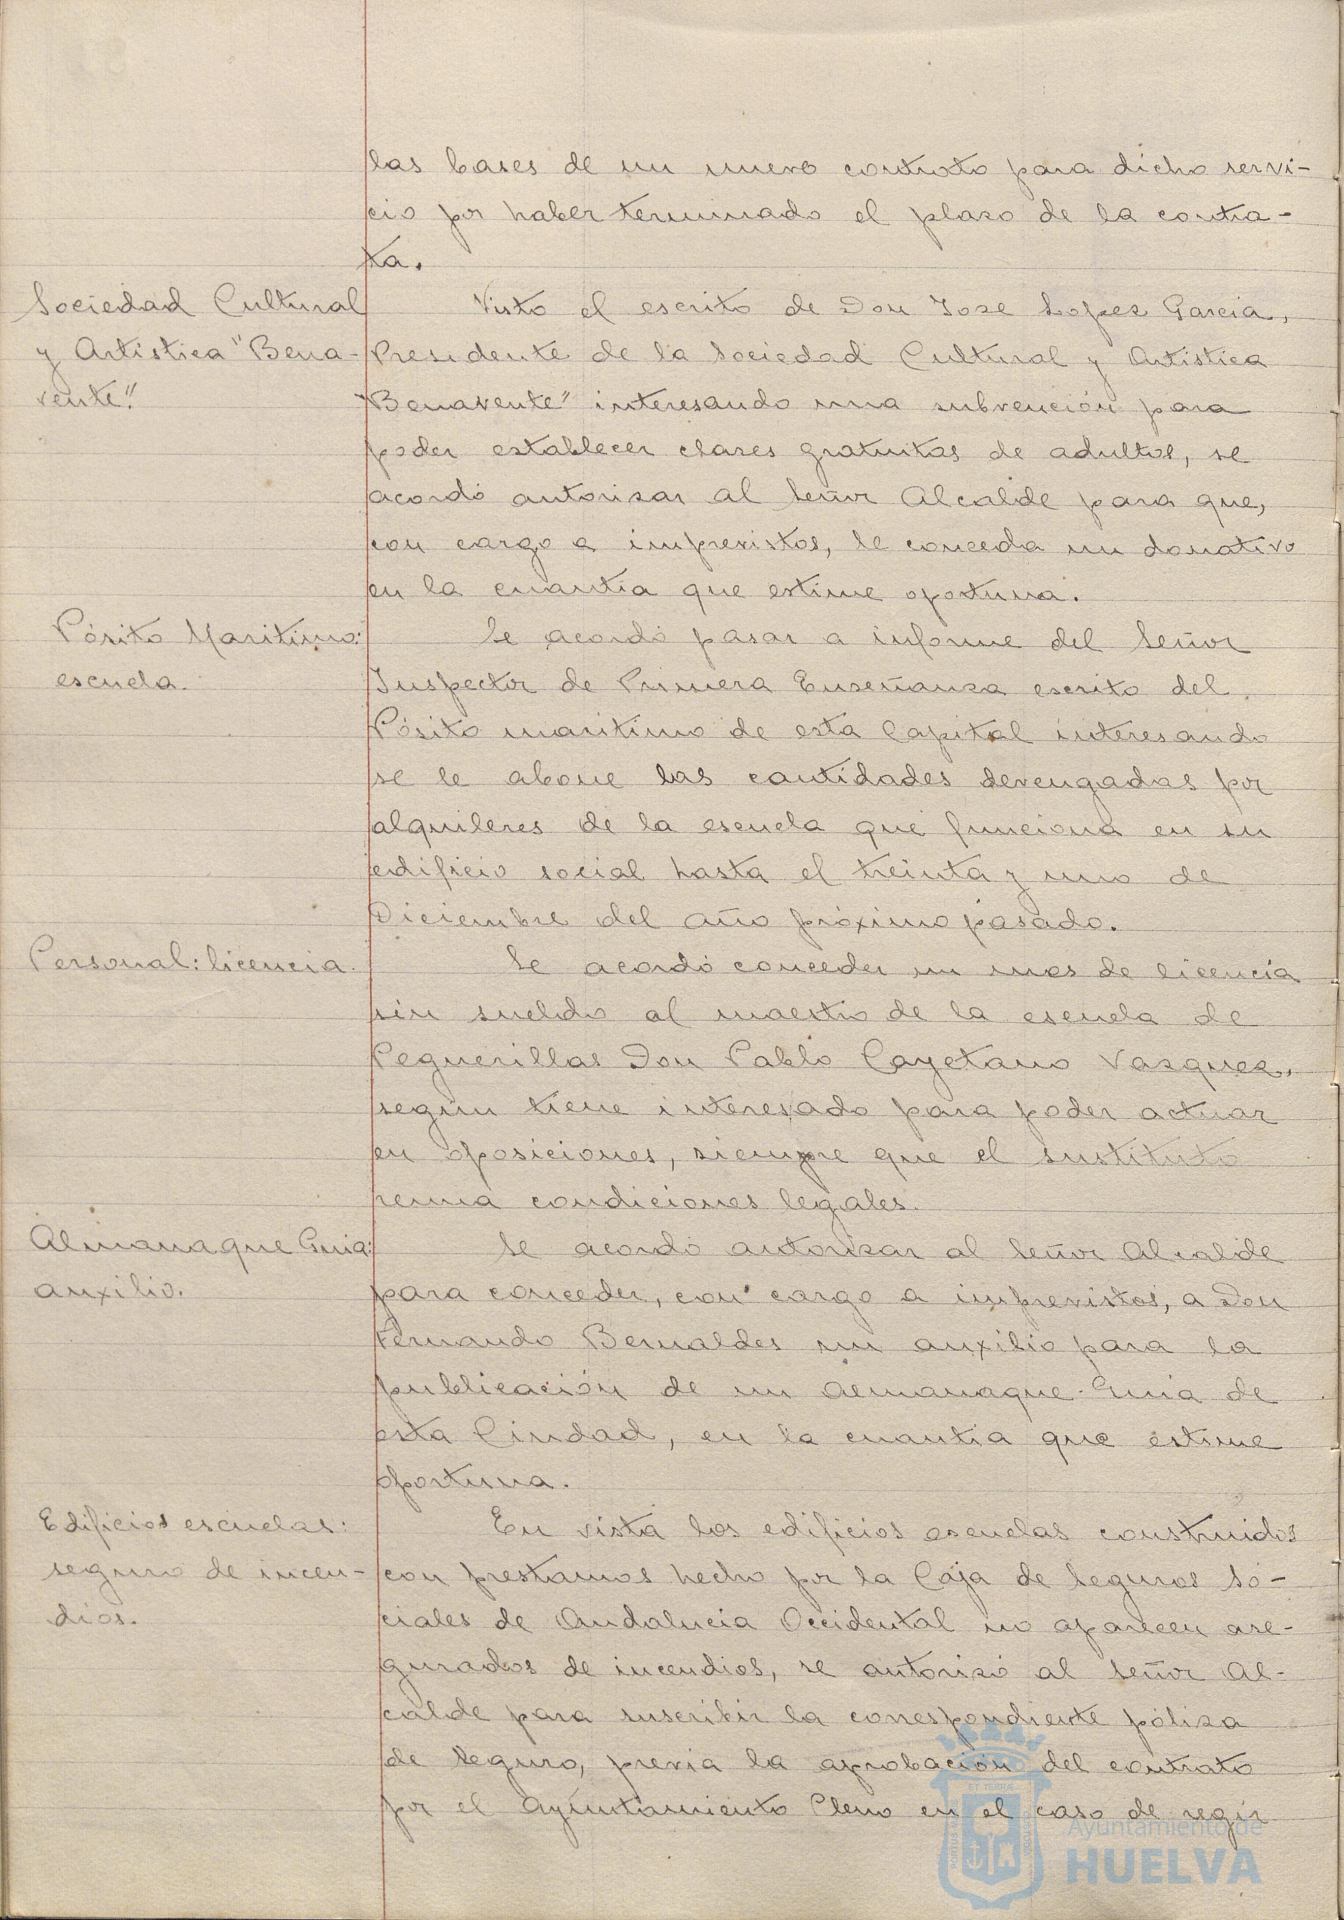 las bases de un nuevo contrato para dicho servi-
cio por haber terminado el plazo de la contra-
ta.
Sociedad Cultural
y Artística "Bena-
vente".
Visto el escrito de Don Jose Lopez Garcia,
Presidente de la Sociedad Cultural y Artistica
"Benavente" interesando una subvención para
poder establecer clases gratuitas de adultos, se
acordó autorizar al Señor Alcalde para que,
con cargo a imprevistos, le conceda un donativo
en la cuantia que estime oportuna.
Pósito Maritimo:
escuela.
Se acordó pasar a informe del Señor
Inspector de Primera Enseñanza escrito del
Pósito maritimo de esta Capital interesando
se le abone las cantidades devengadas por
alquileres de la escuela que funciona en su
edificio social hasta el treinta y uno de
Diciembre del año próximo pasado.
Personal: licencia.
Se acordó conceder un mes de licencia
sin sueldo al maestro de la escuela de
Peguerillas Don Pablo Cayetano Vazquez,
según tiene interesado para poder actuar
en oposiciones, siempre que el sustituto
reuna condiciones legales.
Almanaque Guia:
auxilio.
Se acordó autorizar al Señor Alcalde
para conceder, con cargo a imprevistos, a Don
Fernando Bernaldes un auxilio para la
publicación de un almanaque-Guia de
esta Ciudad, en la cuantia que estime
oportuna.
Edificios escuelas:
seguro de incen-
dios.
En vista los edificios escuelas construidos
con prestamos hecho por la Caja de Seguros So-
ciales de Andalucia Occidental no aparecen ase-
gurados de incendios, se autorizó al Señor Al-
calde para suscribir la correspondiente póliza
de Seguro, previa la aprobación del contrato
por el Ayuntamiento Pleno en el caso de regir
Ayuntamiento de
HUELVA